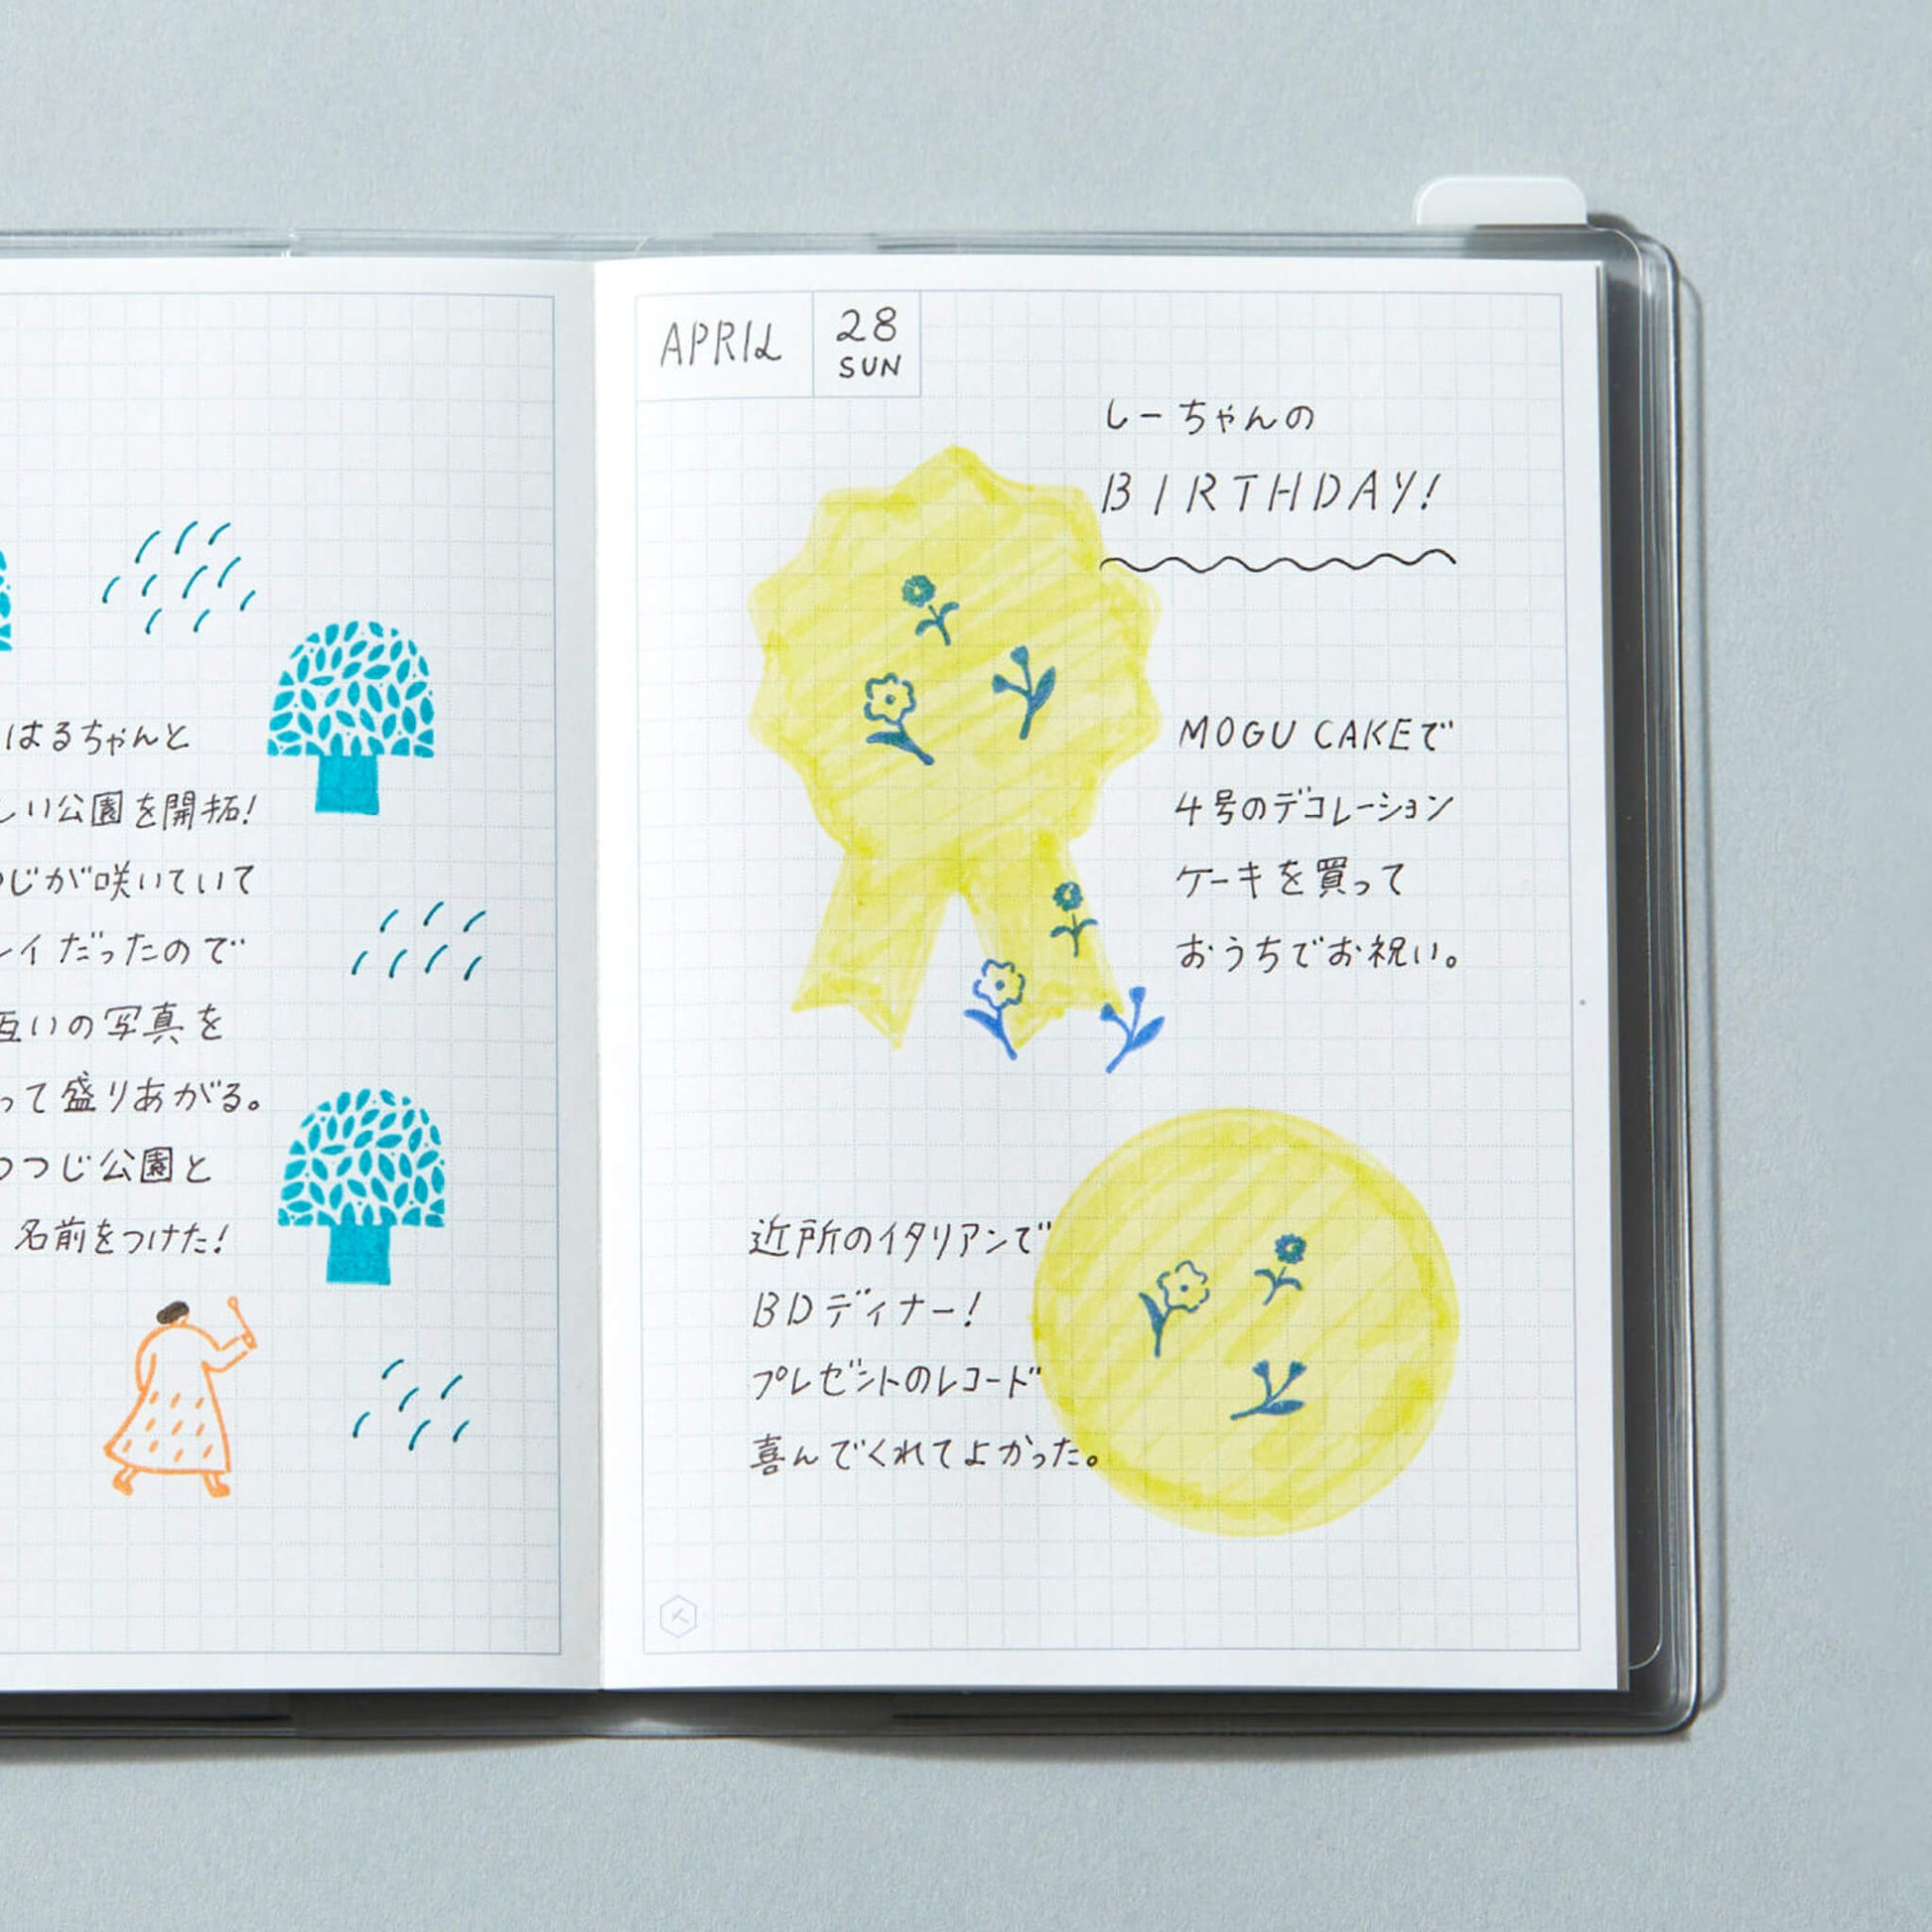 はるちゃんと
しい公園を開拓！
つじが咲いていて
レイだったので
互いの写真を
って盛りあがる。
つつじ公園と
名前をつけた！
APRIL
28
SUN
しーちゃんの
BIRTHDAY!
MOGU CAKEで
4号のデコレーション
ケーキを買って
おうちでお祝い。
近所のイタリアンで
BDディナー！
プレゼントのレコード
喜んでくれてよかった。